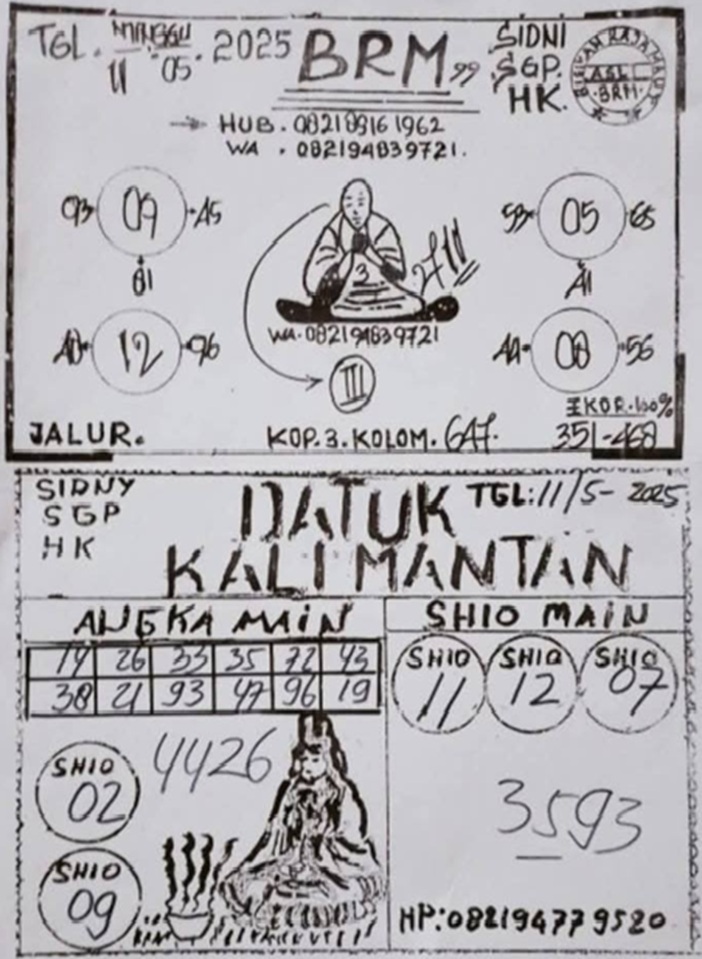 TGL. MINGGU
11 . 05 . 2025
BRM 99
SIDNI
SGP.
HK.
ASL
BRM
→ HUB. 082189161962
WA . 082194839721.
93 09 A5
01
53 05 65
A1
3
2711
12 96
08 56
WA. 082194839721
III
KOR. 100%
JALUR.
KOP. 3. KOLOM. 647.
351-468
SIDNY
SGP
HK
DATUK
KALIMANTAN
TGL: 11/5- 2025
ANGKA MAIN
SHIO MAIN
19 26 33 35 72 43
38 21 93 47 96 19
SHIO
11
SHIO
12
SHIO
07
SHIO
02
4426
3593
SHIO
09
HP: 082194779520